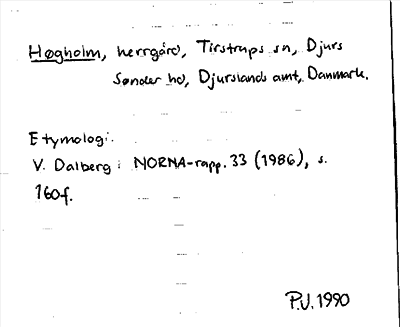 Høgholm, herrgård, Tirstrups sn, Djurs
Sønder hd, Djurslands amt, Danmark.
Etymologi:
V. Dalberg i NORNA-rapp. 33 (1986), s.
160f.
P.J. 1990